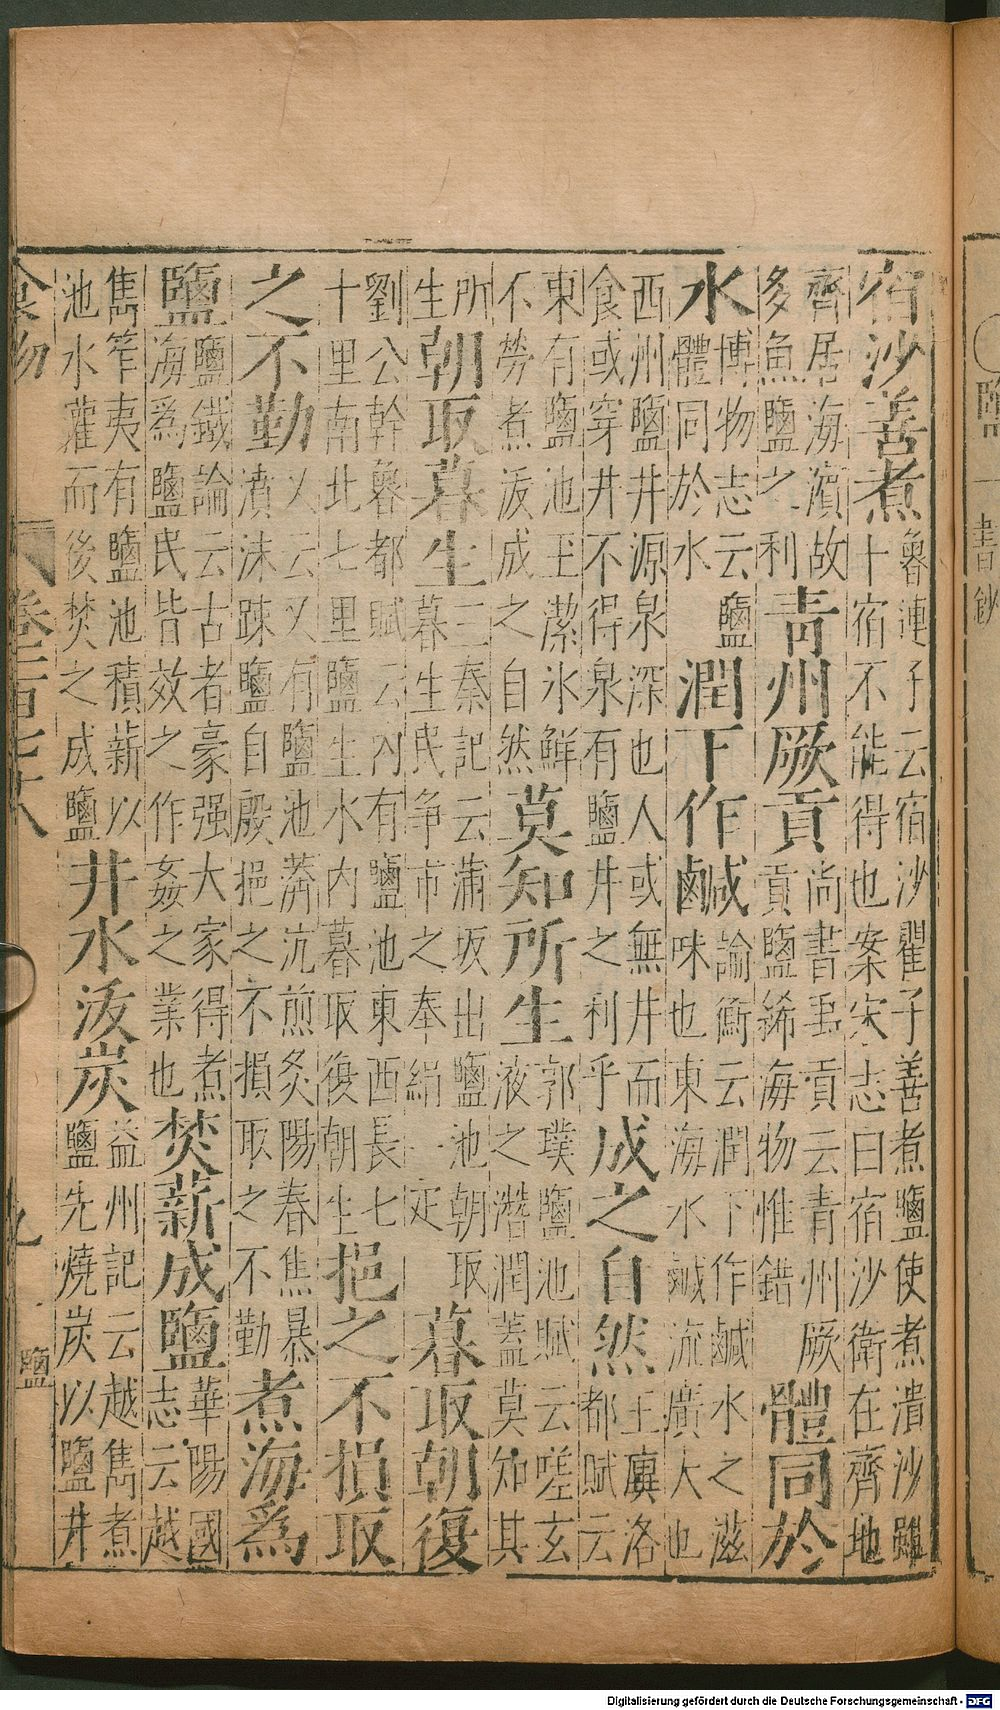 宿沙善煮 魯連子云宿沙瞿子善煮鹽使煮潰沙雖十宿不能得也案宋志曰宿沙衛在齊地
齊居海濱故多魚鹽之利 青州厥貢 尚書禹貢云青州厥貢鹽絺海物惟錯 體同於
水 博物志云鹽體同於水 潤下作鹹 論衡云潤下作鹹水之滋味也東海水鹹流廣大也
西州鹽井源泉深也人或無井而食或穿井不得泉有鹽井之利乎 成之自然 王廙洛都賦云
東有鹽池玉潔氷鮮不勞煮沷成之自然 莫知所生 郭璞鹽池賦云嗟玄液之潛潤蓋莫知其
所生 朝取暮生 三秦記云蒲坂出鹽池朝取暮生民争市之奉絹一疋 暮取朝復
劉公幹魯都賦云内有鹽池東西長七十里南北七里鹽生水内暮取復朝生 挹之不損取
之不勤 乂云乂有鹽池漭沆煎炙陽春焦暴濆沫疎鹽自殿挹之不損取之不勤 煮海爲
鹽 鹽鐵論云古者豪强大家得煮海爲鹽民皆效之作姦之業也 焚薪成鹽 華陽國志云越
雋筰夷有鹽池積薪以池水灌而後焚之成鹽 井水沷炭 益州記云越雋煮鹽先燒炭以鹽井
食物 鹽
Digitalisierung gefördert durch die Deutsche Forschungsgemeinschaft - DFG